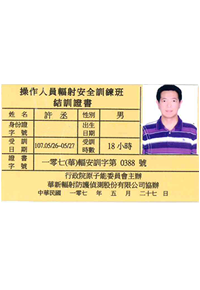 操作人員輻射安全訓練班
結訓證書
姓名 許丞 性別 男
身份證字號 出生日期
受訓日期 107.05/26-05/27 受訓時數 18小時
證書字號 一零七(華)輻安訓字第 0388 號
行政院原子能委員會主辦
華新輻射防護偵測股份有限公司協辦
中華民國 一零七 年 五 月 二十七 日